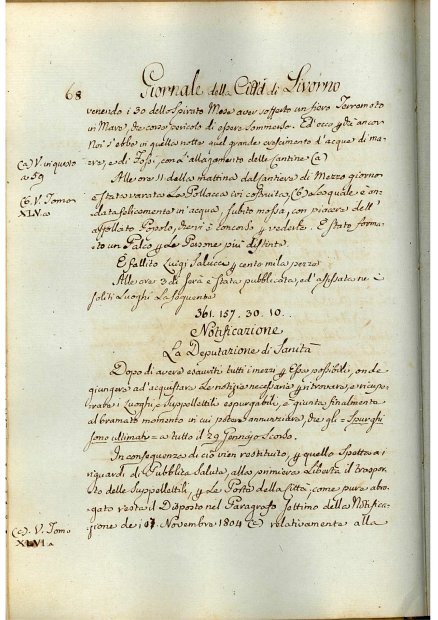 68 Giornale della Città di Livorno
venendo i 30 dello Spirato Mese aver sofferto un fiero Terremoto
in Mare, che corse pericolo di essere Sommerso. Ed ecco che ancor
Noi s'ebbe in quella notte quel grande crescimento d'acque di ma-
re, e di Fossi, con allagamento delle Cantine (a)
(a) V. in questo
a 59
Alle ore 11 della mattina dal Cantiere di Mezzo giorno
(b) V. Tomo
XLV. a
è stata varata La Pollacca ivi costruita, (b) La quale è an-
data felicemente in acqua, subito mossa, con piacere dell'
affollato Popolo, che vi è concorso vederlo. È stato forma-
to un Palco Le Persone più distinte.
È fallito Luigi Salucci cento mila pezze
Alle ore 3 di Sera è stata pubblicata, ed affissata ne i
soliti Luoghi La seguente
361. 157. 30. 10..
Notificazione
La Deputazione di Sanità
Dopo di avere esauriti tutti i mezzi Essa possibili, onde
giungere ad acquistare Le notizie necessarie ritrovare, e ricupe-
rare i Luoghi, e Suppellettili espurgabili, è giunta finalmente
al bramato momento in cui potere annunziare, che gli = Spurghi
sono ultimati = a tutto il 29 Gennajo Scorso.
In conseguenza di ciò vien restituito, quello Spetta a i
riguardi di Pubblica Salute, alla primiera Libertà il traspor-
to delle Suppellettili, Le Porte della Città, come pure abro-
gato resta il Disposto nel Paragrafo Settimo della Notifica-
zione de i 17 Novembre 1804 (c) relativamente alla
(c) V. Tomo
XLVI a